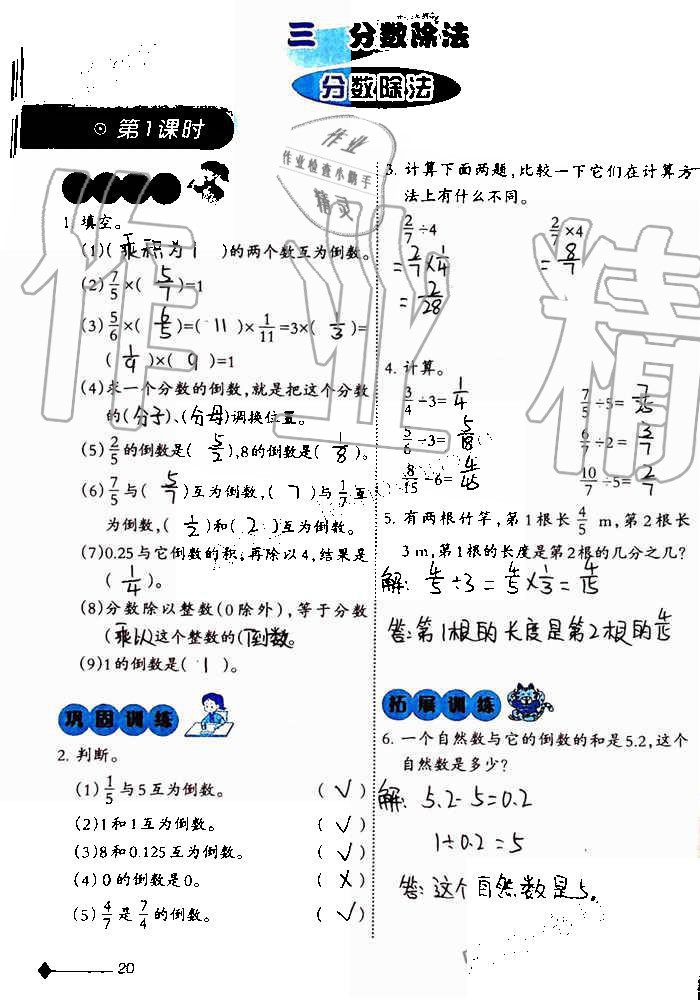 三 分数除法
分数除法
第1课时
1. 填空。
(1)( 乘积为1 )的两个数互为倒数。
(2) 7/5 ×( 5/7 )=1
(3) 5/6 ×( 6/5 )=( 11 )× 1/11 =3×( 1/3 )=
( 1/9 )×( 9 )=1
(4)求一个分数的倒数,就是把这个分数
的(分子)、(分母)调换位置。
(5) 2/5 的倒数是( 5/2 ),8的倒数是( 1/8 )。
(6) 7/5 与( 5/7 )互为倒数,( 7 )与 1/7 互
为倒数,( 1/2 )和( 2 )互为倒数。
(7)0.25与它倒数的积,再除以4,结果是
( 1/4 )。
(8)分数除以整数(0除外),等于分数
(乘以)这个整数的(倒数。
(9)1的倒数是( 1 )。
巩固训练
2. 判断。
(1) 1/5 与5互为倒数。 ( √ )
(2)1和1互为倒数。 ( √ )
(3)8和0.125互为倒数。 ( √ )
(4)0的倒数是0。 ( X )
(5) 4/7 是 7/4 的倒数。 ( √ )
20
3. 计算下面两题,比较一下它们在计算方
法上有什么不同。
2/7 ÷4 2/7 ×4
= 2/7 × 1/4 = 8/7
= 2/28
4. 计算。
3/4 ÷3= 1/4 7/5 ÷5= 7/25
5/6 ÷3= 5/18 6/7 ÷2= 3/7
8/15 ÷6= 4/45 10/7 ÷5= 2/7
5. 有两根竹竿,第1根长 4/5 m,第2根长
3 m,第1根的长度是第2根的几分之几?
解: 4/5 ÷3= 4/5 × 1/3 = 4/15
答:第1根的长度是第2根的 4/15
拓展训练
6. 一个自然数与它的倒数的和是5.2,这个
自然数是多少?
解: 5.2-5=0.2
1÷0.2=5
答:这个自然数是5。
作业
作业检查小帮手
精灵
作业精